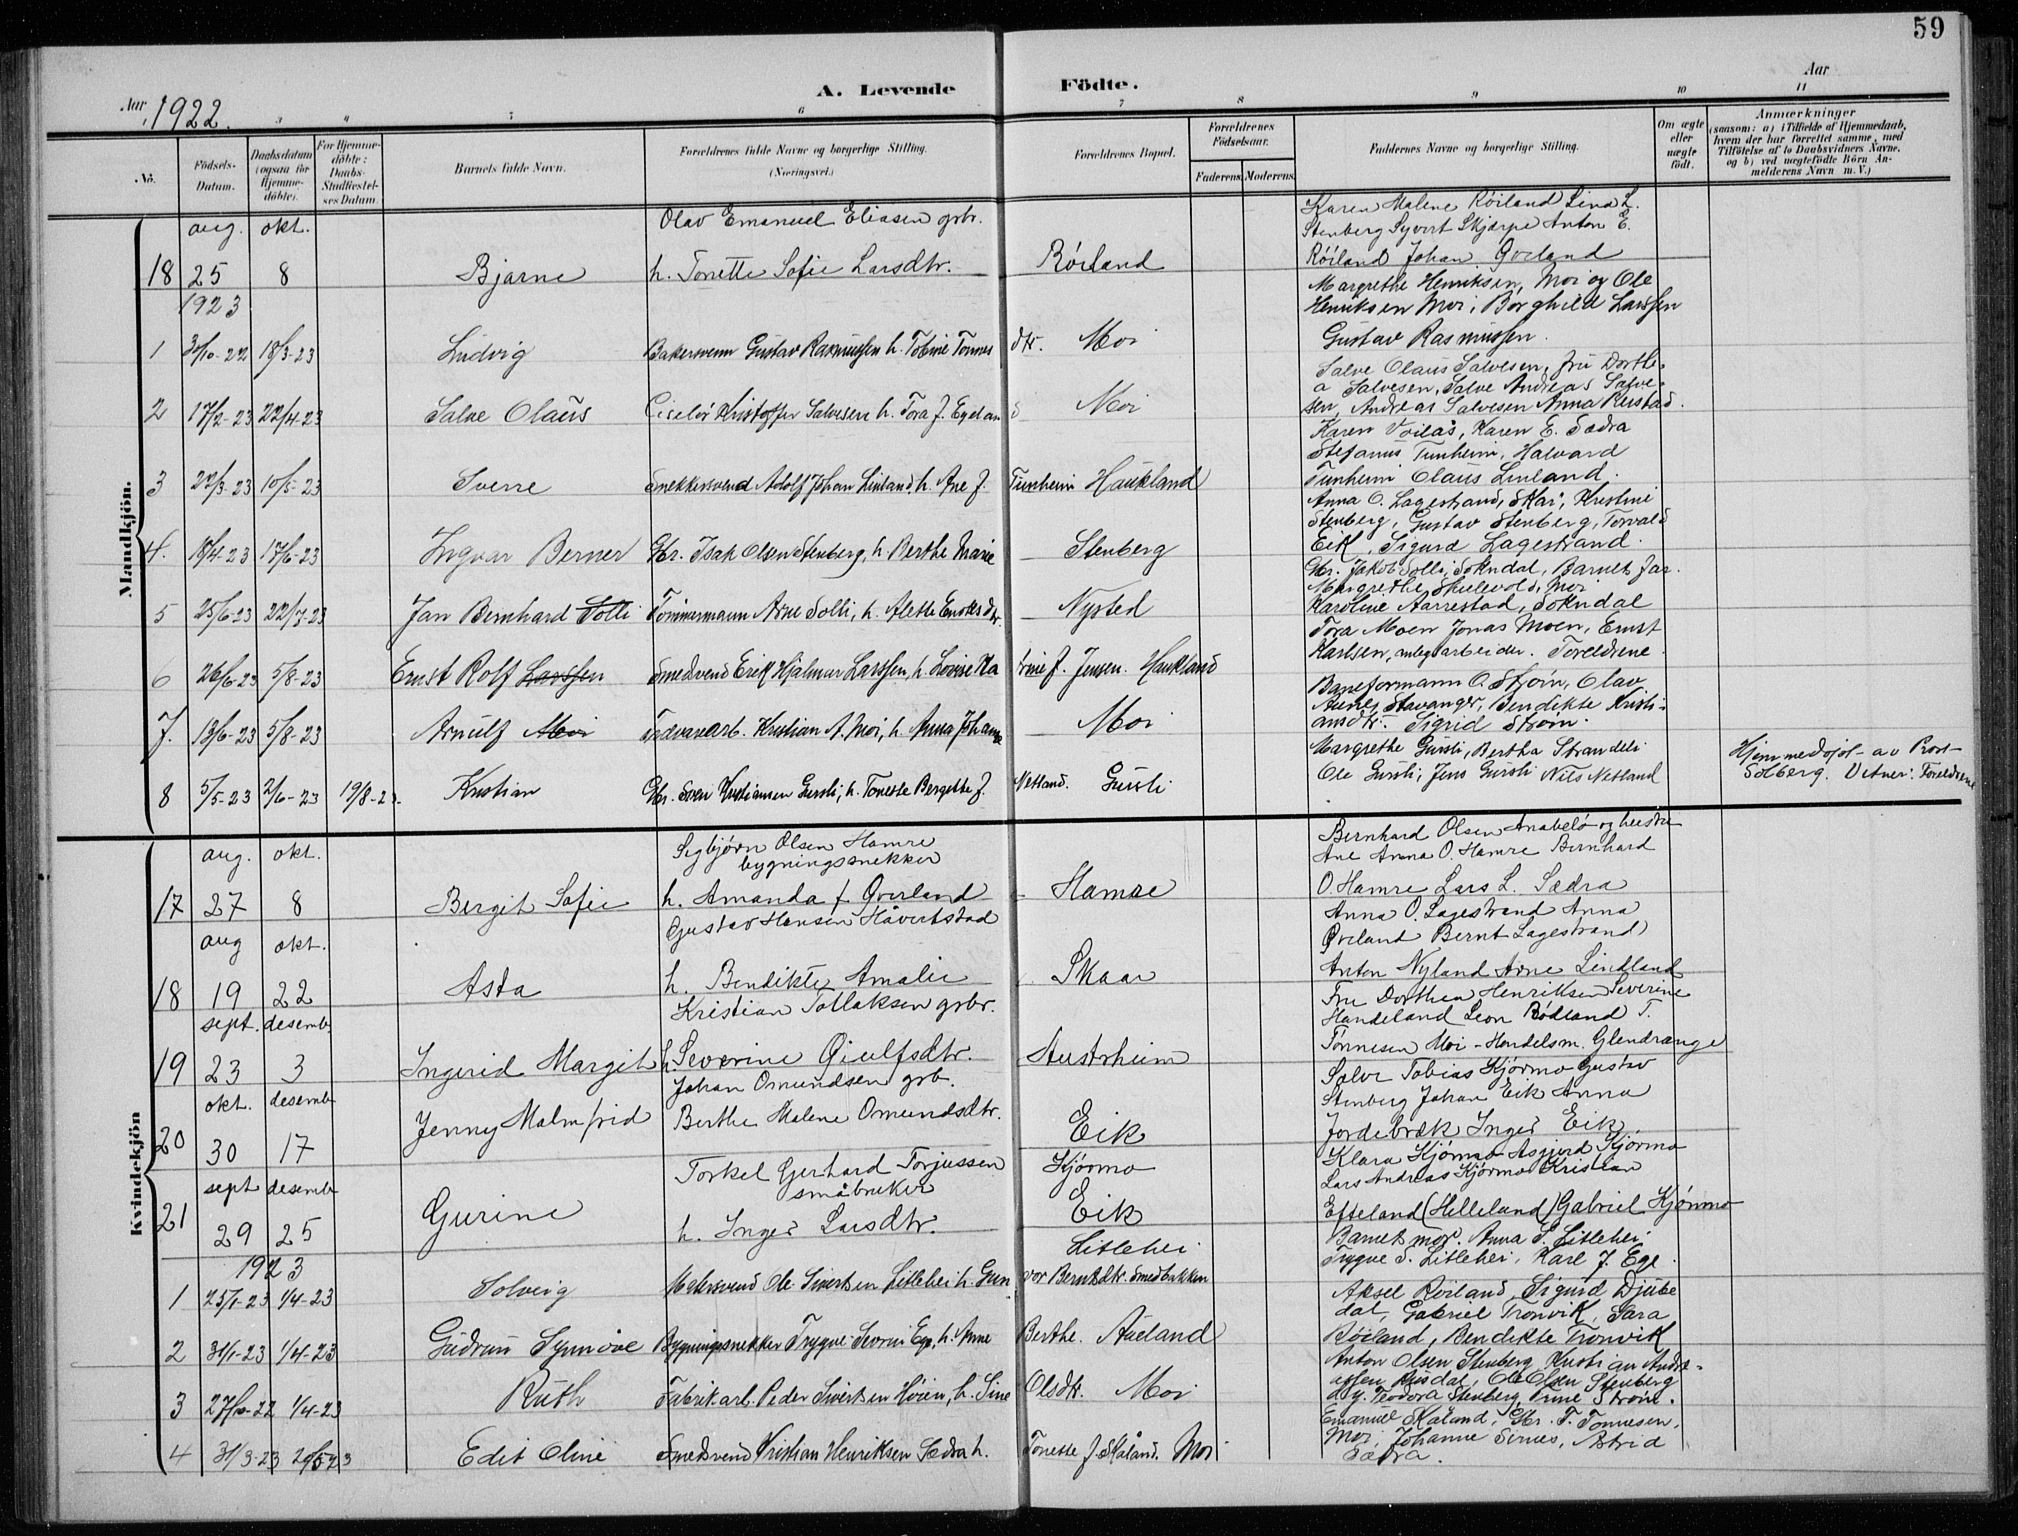 59
A. Levende Födte.
Aar 1922.
Aar
3 4 5 6 7 8 9 10 11
No.
Födsels-Datum.
Daabsdatum (ogsaa for Hjemme-döbte).
For Hjemme-döbte: Daabs-Stadfæstel-ses Datum.
Barnets fulde Navn.
Forældrenes fulde Navne og borgerlige Stilling. (Næringsvei.)
Forældrenes Bopæl.
Forældrenes Födselsaar.
Faderens.
Moderens.
Faddernes Navne og borgerlige Stilling.
Om ægte eller uægte födt.
Anmærkninger
(saasom: a) i Tilfælde af Hjemmedaab, hvem der har forrettet samme, med Tilföielse af to Daabsvidners Navne, og b) ved uægtefödte Börn An-melderens Navn m. V.)
Mandkjön.
aug. okt. Olav Emanuel Eliasen grbr. Karen Malene Röiland Lina L.
Stenberg Syvert Skjærpe Anton E.
18 25 8 Bjarne h. Tonette Sofie Larsdtr. Röiland Röiland Johan Qveland
1923
Margrethe Henriksen, Moi og Ole
Henriksen Moi, Borghild Larssen
1 30/10-22 18/3-23 Ludvig Bakersvenn Gustav Rasmussen h. Tobine Tonnes dtr. Moi Gustav Rasmussen.
Salve Olaus Salvesen, fru Dorthe-
a Salvesen, Salve Andreas Salve-
2 17/2-23 22/4-23 Salve Olaus Ciselör Kristoffer Salvesen h. Tora J. Egeland Moi sen, Andreas Salvesen Anna
Karen Voilås, Karen E. Sædra
Stefanus Tunheim, Halvard
3 22/3-23 10/5-23 Sverre Snekkersvend Adolf Johan Linland, h. Ane J. Tunheim Haukland Tunheim Olaus Linland.
Anna O. Lagestrand, Skar, Kristine
Stenberg, Gustav Stenberg, Torvald
4. 18/4-23 17/6-23 Ingvar Berner Gbr. Isak Olsen Stenberg, h. Berthe Marie Stenberg Eik, Sigurd Lagestrand.
Gbr. Jakob Solli, Sokndal, Barnets far.
Margrethe Skulevold, Moi
5 25/6-23 22/7-23 Jan Bernhard Solli Tömmermann Arne Solli, h. Alette Nysted Karoline Aarrestad, Sokndal
Tora Moen Jonas Moen, Ernst
6 26/6-23 5/8-23 Ernst Rolf Larssen Smedsvend Erik Hjalmar Larssen, h. Lovise Ka trine J. Jensen. Haukland Karlsen, anlegsarbeider. Foreldrene
Baneformann O. Ström, Olav
Stavanger, Bendikte Kristi-
7. 13/6-23 5/8-23 Arnulf Moi Kristian A. Moi, h. Anna Moi ansdtr. Sigrid Ström.
Margrethe Gursli, Bertha Strandeli
8 5/5-23 2/6-23 19/8-23. Kristian Gbr. Sven Kristiansen Gursli, h. Tonette Bergette J. Netland. Gursli Ole Gursli, Jens Gursli Nils Netland Hjemmedøpt av Prost Solberg. Vitner: Foreldrene
Kvindekjön
aug. okt. Segbjörn Olsen Hamre bygningssnekker Bernhard Olsen Anabelö og hustru
Ane Anna O. Hamre Bernhard
17 27 8 Bergit Sofie h. Amanda f. Qverland Hamre O. Hamre Lars L. Sædra
aug okt. Gustav Hansen Håvertstad Anna O. Lagestrand Anna
Qveland Bernt Lagestrand
18 19 22 Asta h. Bendikte Amalie Skaar Anton Nyland Arne Lindland
sept. desemb. Kristian Tollaksen grbr. Fru Dorthea Henriksen Severine
Handeland Leon Rödland T.
19 23 3 Ingerid Margit h. Severine Qiulfsdtr. Austrheim Tönnesen Moi - Handelsm. Glendrange
okt. desemb Johan Omundsen grb. Salve Tobias Kjörmo Gustav
Stenberg Johan Eik Anna
20 30 17 Jenny Malmfrid Berthe Malene Omundsdtr. Eik Jordebræk Inger Eik
sept desemb Torkel Gerhard Torjussen småbruker Kjörmo Klara Kjörmo Asgjerd Kjörmo
Lars Andreas Kjörmo Kristian
21 29 25 Gurine h. Inger Larsdtr. Eik Efteland (Helleland) Gabriel Kjörmo
1923 Litlehei Barnets mor. Anna S. Litlehei
Trygve S. Litlehei, Karl J. Ege.
1 25/1-23 1/4-23 Solveig Malersvend Ole Sivertsen Litlehei h. Gun vor Berntsdtr. Smedbakken
Aksel Röiland, Sigurd Djube
dal, Gabriel Tronvik, Sara
2 31/1-23 1/4-23 Gudrun Synnöve Bygningssnekker Trygve Severin Ege, h. Anne Berthe. Aueland Röiland, Bendikte Tronvik
Anton Olsen Stenberg Kristian Andre-
assen Risdal, Ole Olsen Stenberg
3 27/10-22 1/4-23 Ruth Fabrikarb. Peder Sivertsen Höien, h. Sine Olsdtr. Moi d.y. Teodora Stenberg, Trine Ström.
Emanuel Skåland, Gbr. T. Tonnesen,
4 31/3-23 20/5-23 Edit Oline Smedsvend Kristian Henriksen Sædra h. Tonette J. Skåland. Moi Moi Johanne Sirnes, Astrid
Sædra.